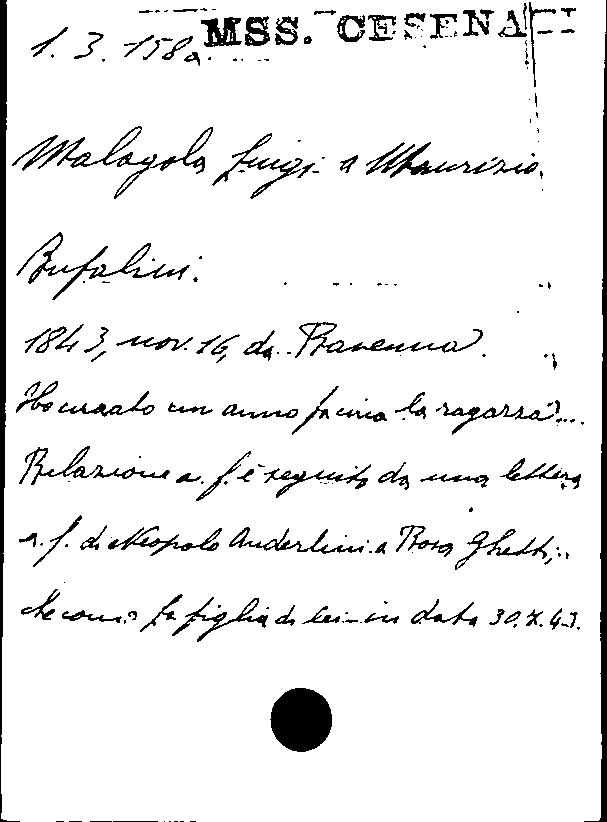 MSS. CESENA
1. 3. 158a
Malagola Luigi a Maurizio
Bufalini.
1843, nov. 16, da Ravenna.
Ho curato un anno fa una la ragazza...
Relazione a. f. è seguita da una lettera
a. f. di Neopolo Anderlini a Rosa Ghetti,
la figlia di lei in data 30.X.43.